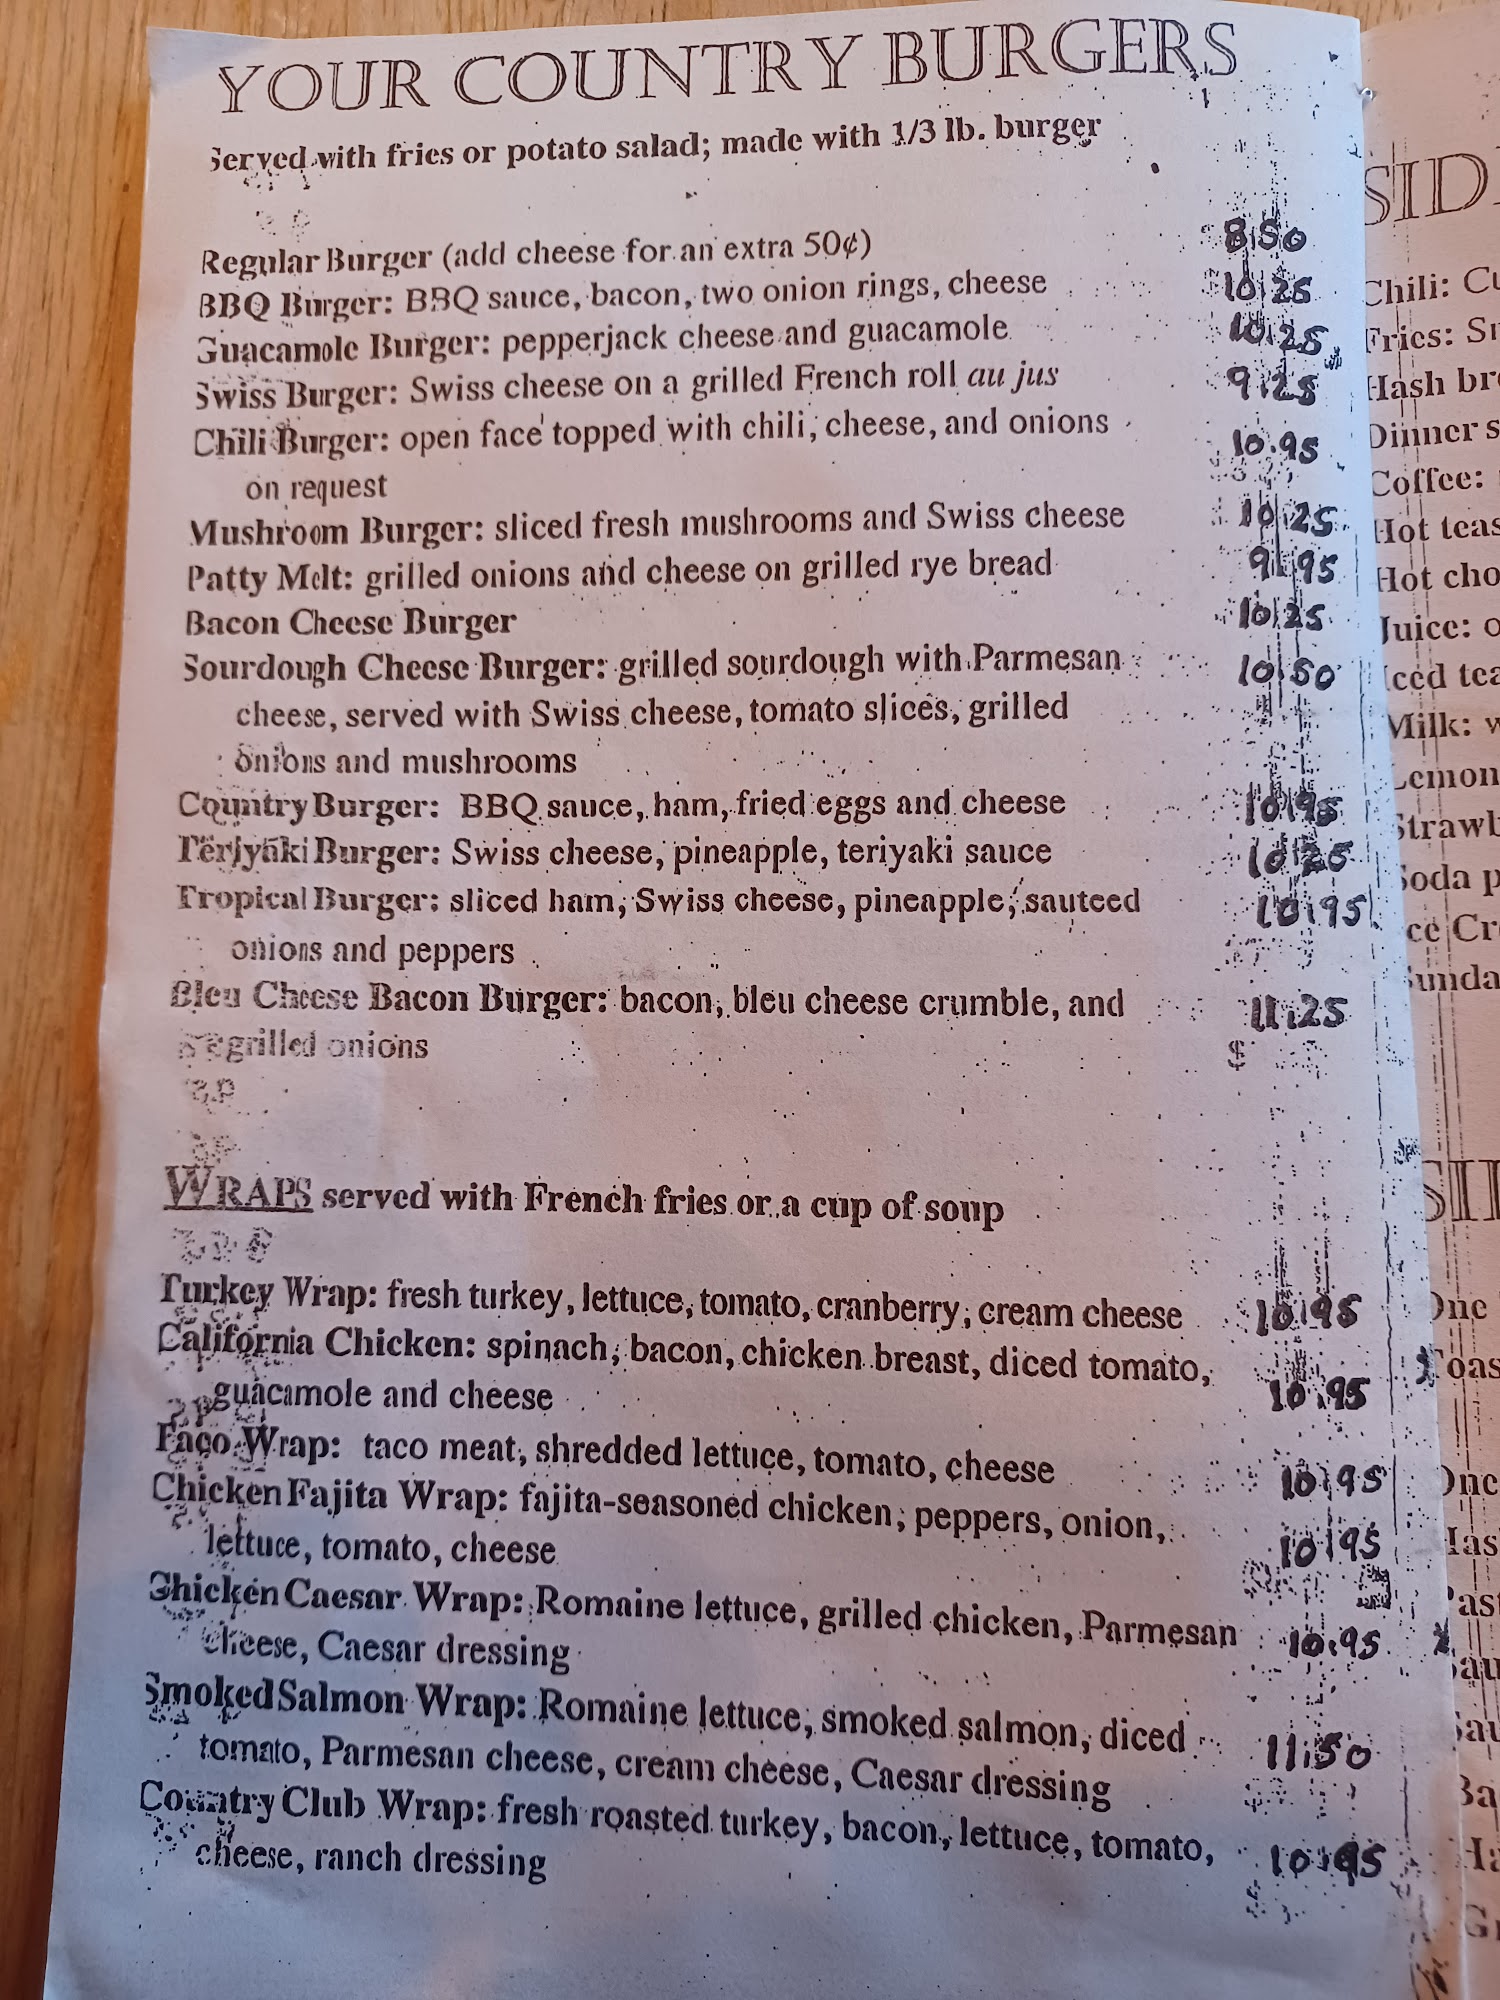 YOUR COUNTRY BURGERS
Served with fries or potato salad; made with 1/3 lb. burger
Regular Burger (add cheese for an extra 50¢) 8.50
BBQ Burger: BBQ sauce, bacon, two onion rings, cheese 10.25
Guacamole Burger: pepperjack cheese and guacamole 10.25
Swiss Burger: Swiss cheese on a grilled French roll au jus 9.25
Chili Burger: open face topped with chili, cheese, and onions 10.95
on request
Mushroom Burger: sliced fresh mushrooms and Swiss cheese 10.25
Patty Melt: grilled onions and cheese on grilled rye bread 9.95
Bacon Cheese Burger 10.25
Sourdough Cheese Burger: grilled sourdough with Parmesan 10.50
cheese, served with Swiss cheese, tomato slices, grilled
onions and mushrooms
Country Burger: BBQ sauce, ham, fried eggs and cheese 10.95
Teriyaki Burger: Swiss cheese, pineapple, teriyaki sauce 10.25
Tropical Burger: sliced ham, Swiss cheese, pineapple, sauteed 10.95
onions and peppers
Bleu Cheese Bacon Burger: bacon, bleu cheese crumble, and 11.25
grilled onions $
WRAPS served with French fries or a cup of soup
Turkey Wrap: fresh turkey, lettuce, tomato, cranberry, cream cheese 10.95
California Chicken: spinach, bacon, chicken breast, diced tomato,
guacamole and cheese 10.95
Taco Wrap: taco meat, shredded lettuce, tomato, cheese 10.95
Chicken Fajita Wrap: fajita-seasoned chicken, peppers, onion,
lettuce, tomato, cheese 10.95
Chicken Caesar Wrap: Romaine lettuce, grilled chicken, Parmesan 10.95
cheese, Caesar dressing
Smoked Salmon Wrap: Romaine lettuce, smoked salmon, diced 11.50
tomato, Parmesan cheese, cream cheese, Caesar dressing
Country Club Wrap: fresh roasted turkey, bacon, lettuce, tomato, 10.95
cheese, ranch dressing
Chili:
Fries:
Hash
Dinner
Coffee:
Hot teas
Hot
Juice:
Iced
Milk:
Soda